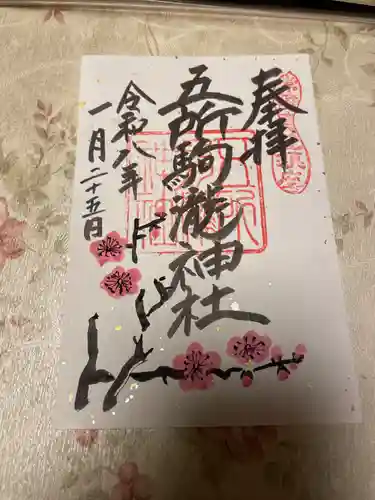 奉拝
五所駒瀧神社
令和八年
一月二十五日